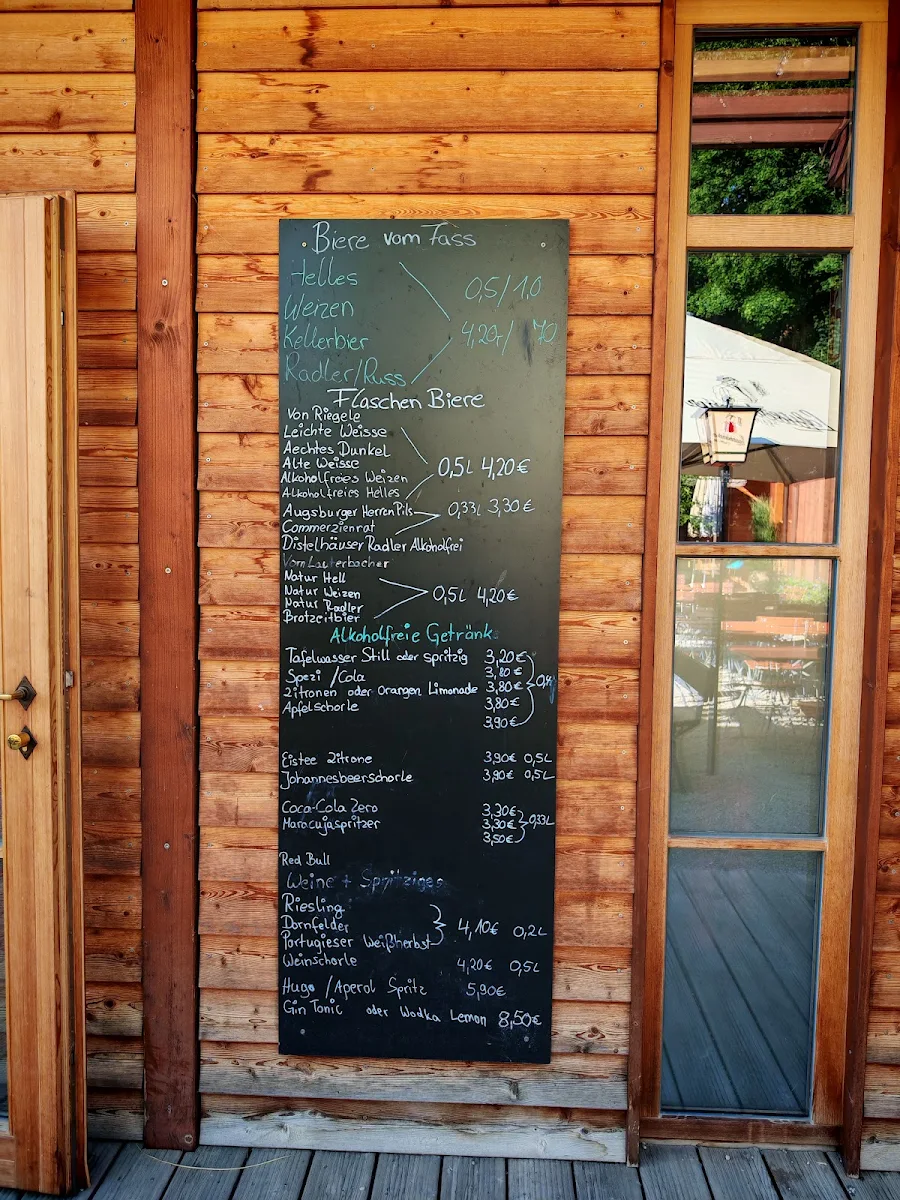 Biere vom Fass
Helles
0,5/1,0
Weizen
Kellerbier
4,20/ 70
Radler/Russ
Flaschen Biere
Von Riegele
Leichte Weisse
Aechtes Dunkel
Alte Weisse
0,5L 4,20€
Alkoholfreies Weizen
Alkoholfreies Helles
Augsburger HerrenPils
0,33L 3,30€
Commerzienrat
Distelhäuser Radler Alkoholfrei
Vom Lauterbacher
Natur Hell
Natur Weizen
0,5L 4,20€
Natur Radler
Brotzeitbier
Alkoholfreie Getränk
Tafelwasser Still oder spritzig 3,20€
Spezi /Cola 3,80€
Zitronen oder Orangen Limonade 3,80€
Apfelschorle 3,80€
3,90€
Eistee Zitrone 3,90€ 0,5L
Johannesbeerschorle 3,90€ 0,5L
Coca-Cola Zero 3,30€
Maracujaspritzer 3,30€ 0,33L
3,50€
Red Bull
Weine + Spritziges
Riesling
Dornfelder 4,10€ 0,2L
Portugieser Weißherbst
Weinschorle 4,20€ 0,5L
Hugo /Aperol Spritz 5,90€
Gin Tonic oder Wodka Lemon 8,50€